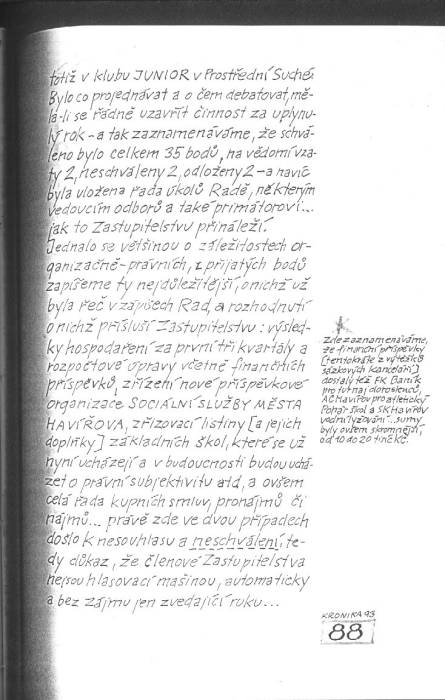 totiž v klubu JUNIOR v Prostřední Suché.
Bylo co projednávat a o čem debatovat, mě-
la-li se řádně uzavřít činnost za uplynu-
lý rok – a tak zaznamenáváme, že schvá-
leno bylo celkem 35 bodů, na vědomí vza-
ty 2, neschváleny 2, odloženy 2 – a navíc
byla uložena řada úkolů Radě, některým
vedoucím odborů a také primátorovi...
jak to Zastupitelstvu přináleží.
Jednalo se většinou o záležitostech or-
ganizačně-právních, z přijatých bodů
zapíšeme ty nejdůležitější, o nichž už
byla řeč v zápisech Rad, a rozhodnutí
o nichž přísluší Zastupitelstvu: výsled-
ky hospodaření za první tři kvartály a
rozpočtové úpravy včetně finančních
příspěvků, zřízení nové příspěvkové
organizace SOCIÁLNÍ SLUŽBY MĚSTA
HAVÍŘOVA, zřizovací listiny [a jejich
doplňky] základních škol, které se už
nyní ucházejí a v budoucnosti budou uchá-
zet o právní subjektivitu atd, a ovšem
celá řada kupních smluv, pronájmů či
nájmů... právě zde ve dvou případech
došlo k nesouhlasu a neschválení, te-
dy důkaz, že členové Zastupitelstva
nejsou hlasovací mašinou, automaticky
a bez zájmu jen zvedající ruku...
*
Zde zaznamenáváme,
že finanční příspěvky
[tentokráte z výtěžků
sázkových kanceláří]
dostaly též FK Baník
pro turnaj dorostenců,
AC Havířov pro atletický
Pohár škol a SK Havířov
vodní lyžování... sumy
byly ovšem skromnější,
od 10 do 20 tin Kč.
KRONIKA 93
88